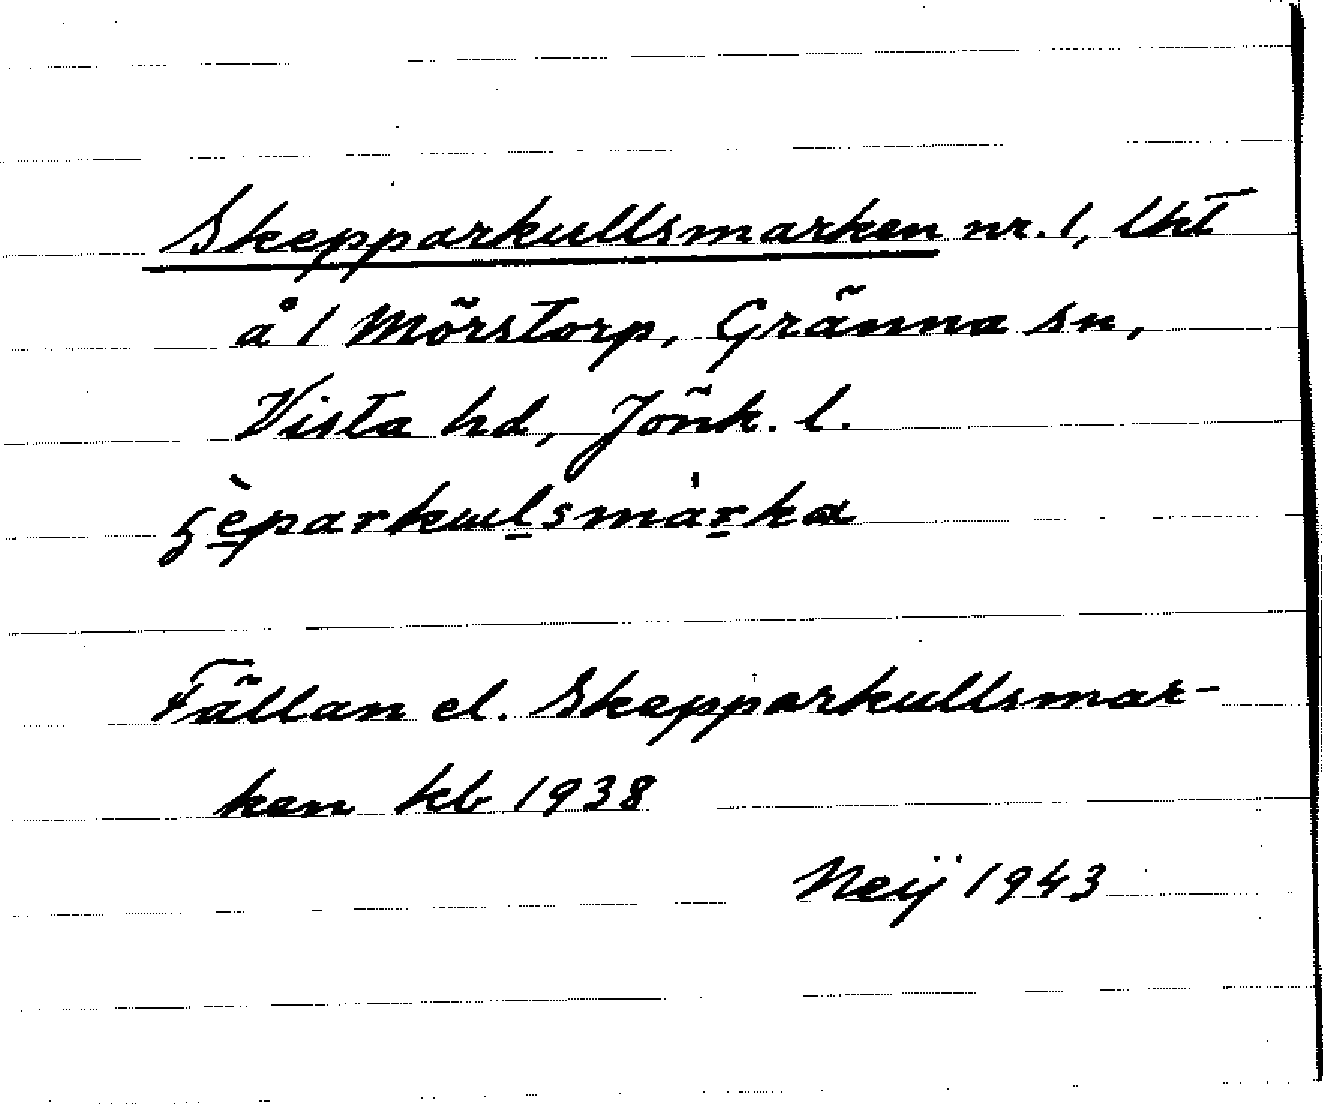 Skepparkullsmarken nr. 1, lht
å 1 Mörstorp, Gränna sn,
Vista hd, Jönk. l.
Fällan el. Skepparkullsmar-
ken kb 1938
Neij 1943